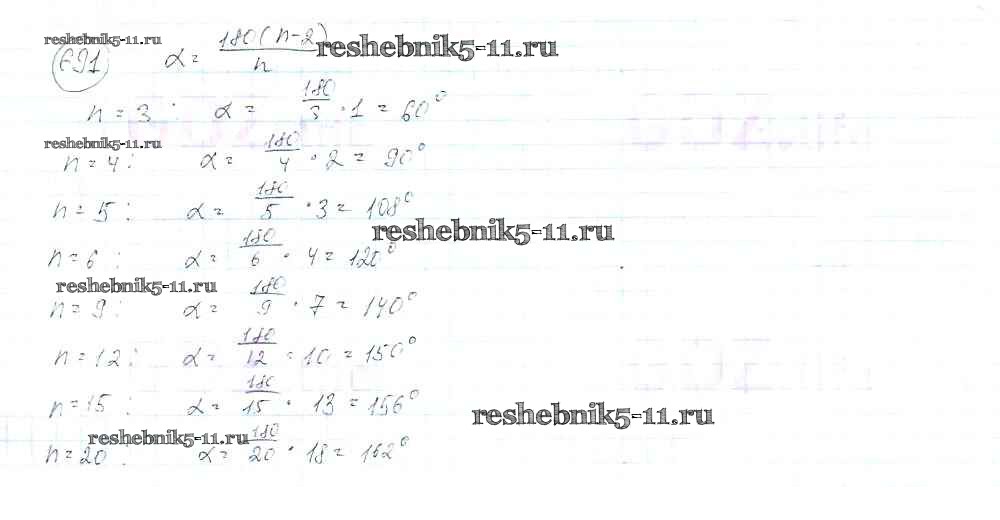 reshebnik5-11.ru
691 α = 180(n-2)/n reshebnik5-11.ru
n = 3 : α = 180/3 · 1 = 60°
reshebnik5-11.ru
n = 4 : α = 180/4 · 2 = 90°
n = 5 : α = 180/5 · 3 = 108°
reshebnik5-11.ru
n = 6 : α = 180/6 · 4 = 120°
reshebnik5-11.ru
n = 9 : α = 180/9 · 7 = 140°
n = 12 : α = 180/12 = 10 = 150°
n = 15 : α = 180/15 · 13 = 156°
reshebnik5-11.ru
reshebnik5-11.ru
n = 20 : α = 180/20 · 18 = 162°